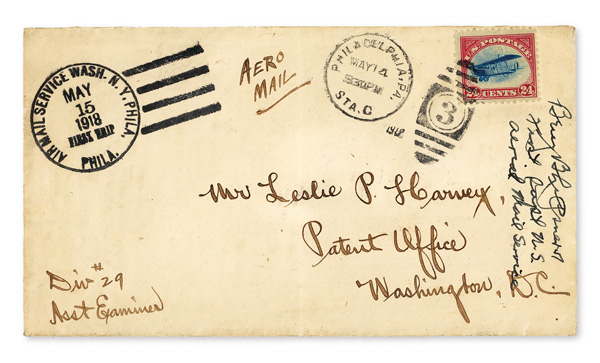 AIR MAIL SERVICE WASH. N.Y. PHILA.
MAY
15
1918
FIRST TRIP
PHILA.
AERO
MAIL
PHILADELPHIA, PA.
MAY 14
STA. C
1918
3
U.S. POSTAGE
24 CENTS 24
Mr Leslie P. Harvey,
Patent Office
Washington, D.C.
Div # 29
Asst Examiner
U.S.
Aerial Mail Service